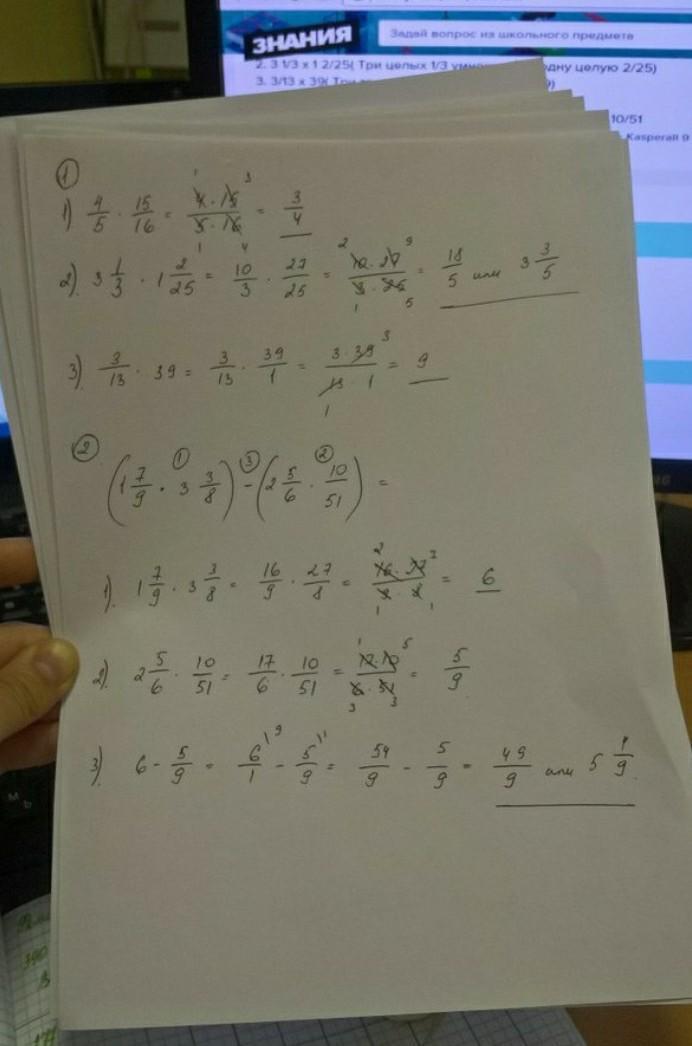 ЗНАНИЯ
Задай вопрос из школьного предмета
2. 3 1/3 x 1 2/25( Три целых 1/3 одну целую 2/25)
3. 3/13 x 39(
10/51
Kasperall 9
1
1) 4/5 · 15/16 = 4 · 15/5 · 16 = 3/4
2) 3 1/3 · 1 2/25 = 10/3 · 27/25 = 10 · 27/3 · 25 = 18/5 или 3 3/5
3) 3/13 · 39 = 3/13 · 39/1 = 3 · 39/13 · 1 = 9
2
(1 7/9 · 3 3/8) - (2 5/6 · 10/51) =
1) 1 7/9 · 3 3/8 = 16/9 · 27/8 = 16 · 27/9 · 8 = 6
2) 2 5/6 · 10/51 = 17/6 · 10/51 = 17 · 10/6 · 51 = 5/9
3) 6 - 5/9 = 6/1 - 5/9 = 54/9 - 5/9 = 49/9 или 5 4/9